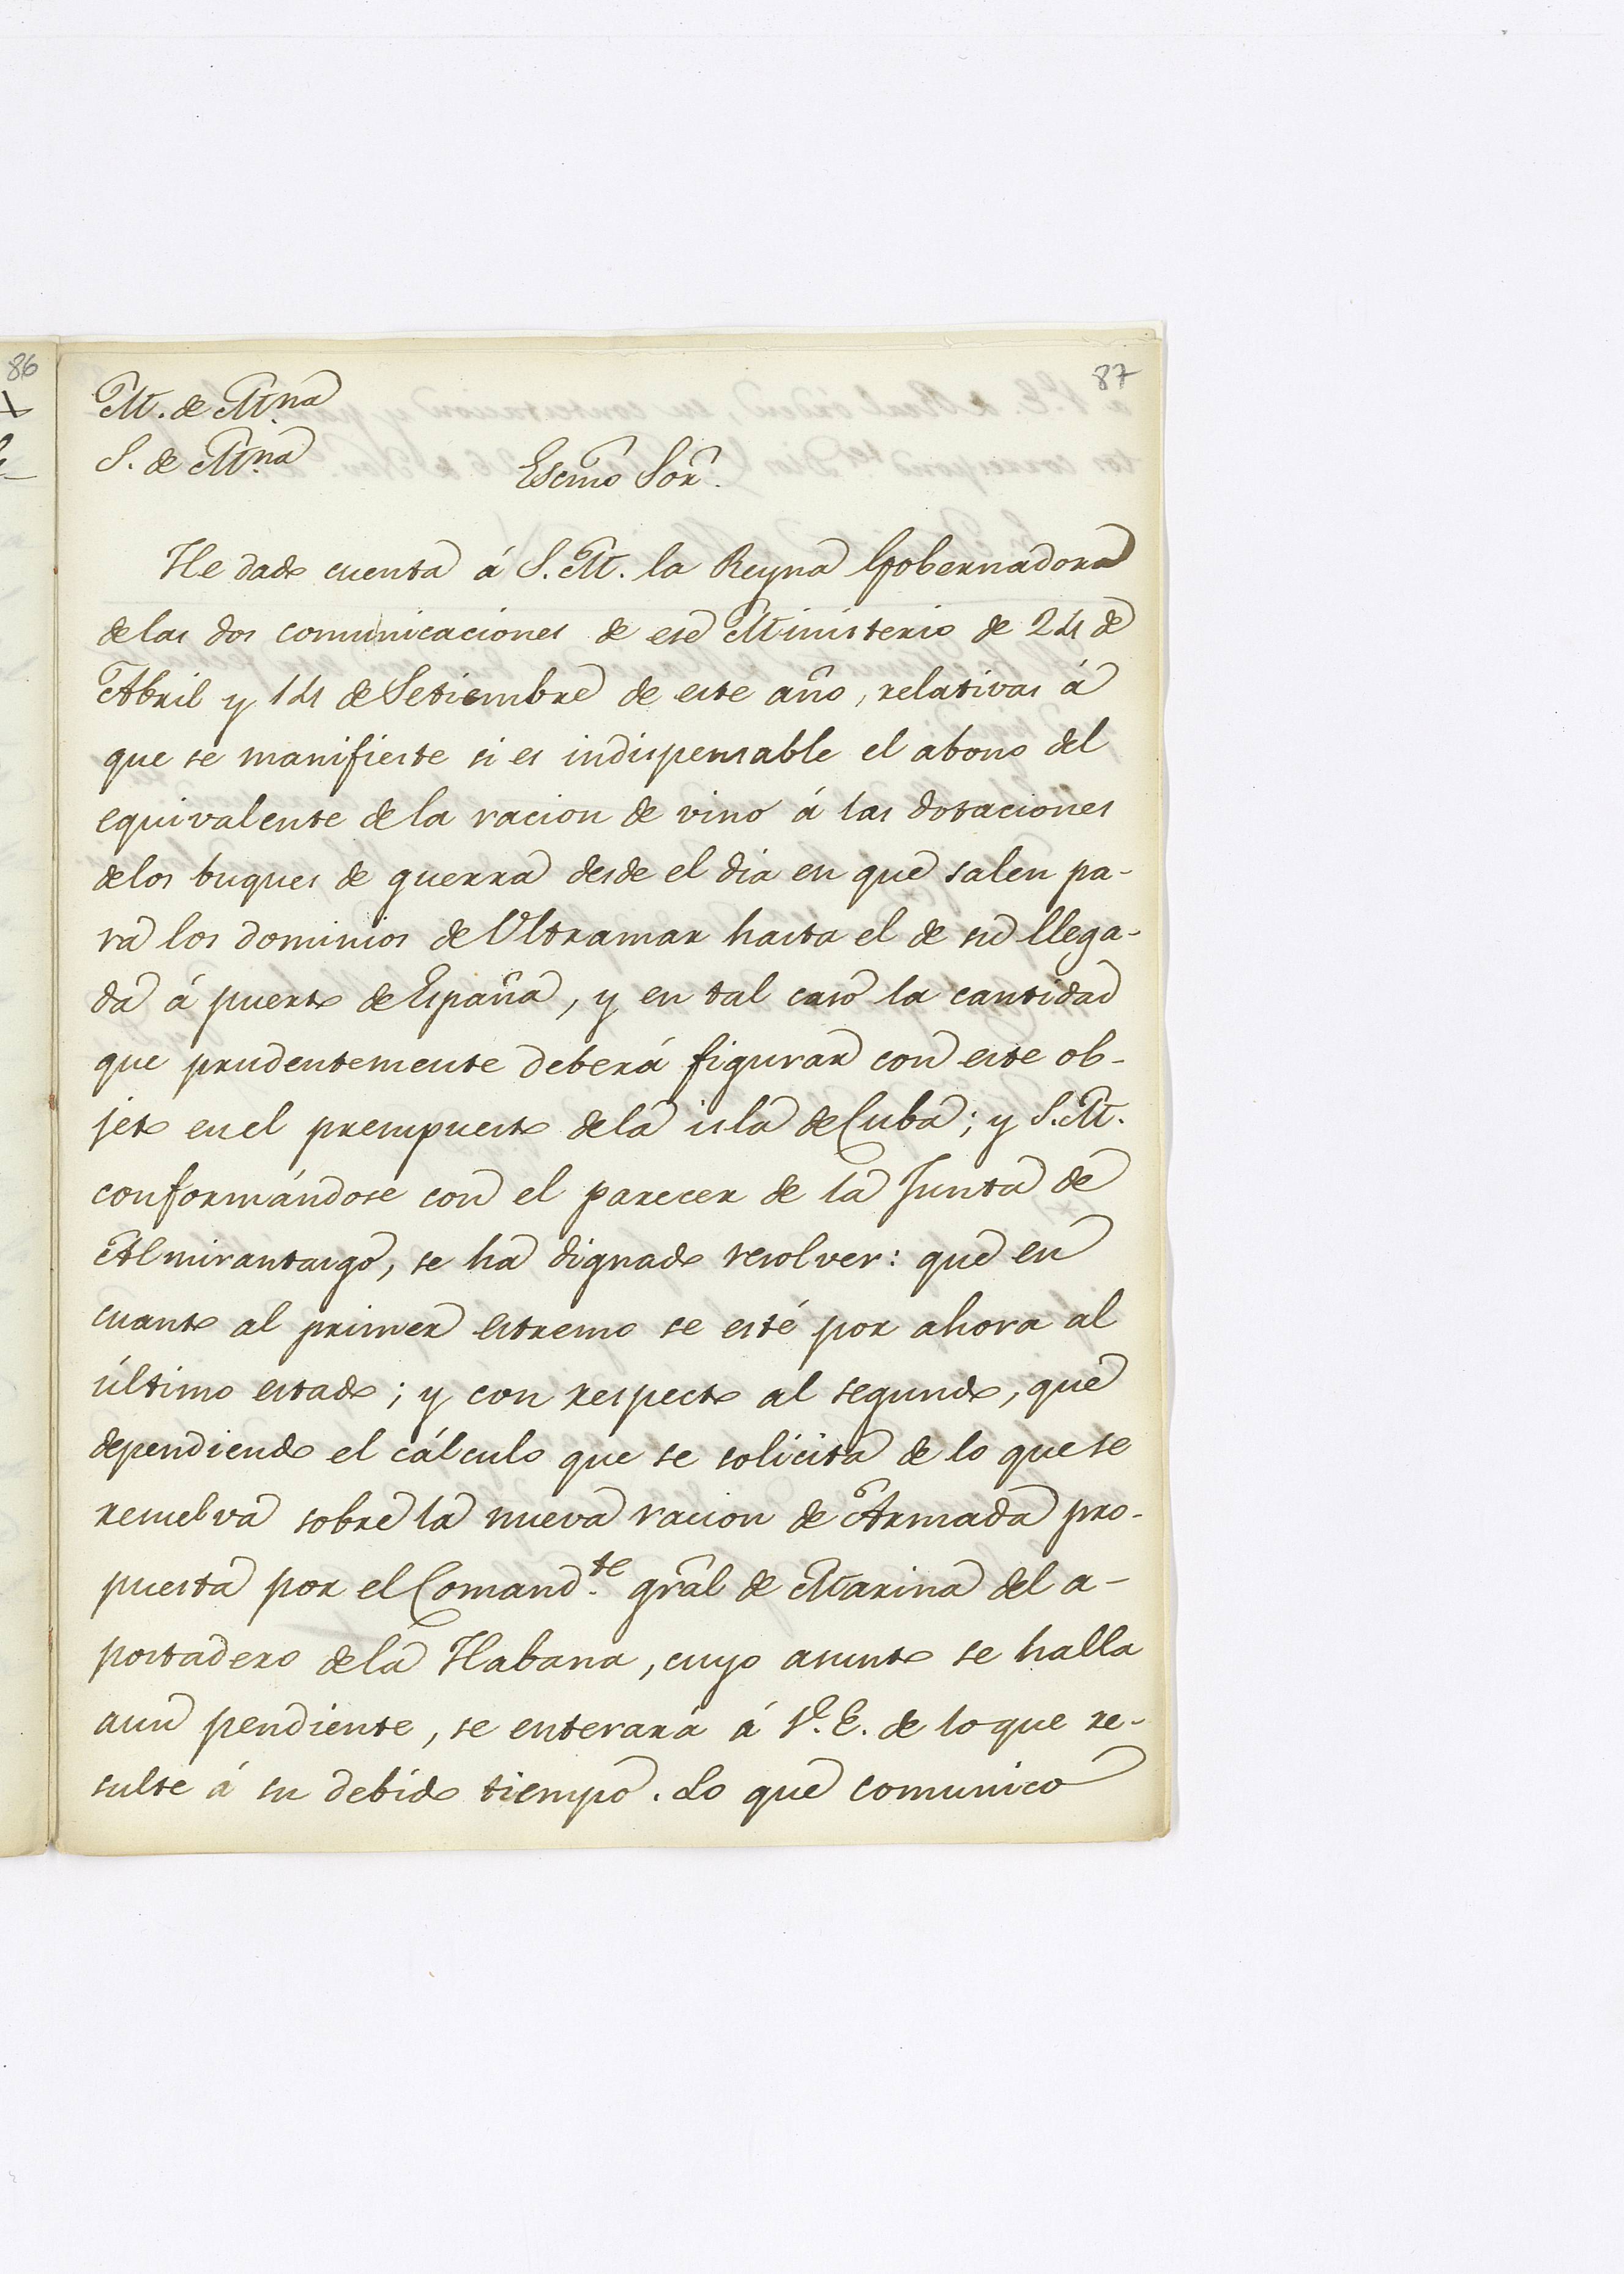 86
87
M. de M.na
S. de M.na
Escmo Sor.
He dado cuenta á S. M. la Reyna Gobernadora
delas dos comunicaciones de ese Ministerio de 24 de
Abril y 14 de Setiembre de este año, relativas á
que se manifieste si es indispensable el abono del
equivalente dela racion de vino á las dotaciones
delos buques de guerra desde el dia en que salen pa-
ra los dominios de Ultramar hasta el de su llega-
da á puerto de España, y en tal caso la cantidad
que prudentemente deberá figurar con este ob-
jeto enel presupuesto dela isla de Cuba; y S. M.
conformándose con el parecer de la Junta de
Almirantazgo, se ha dignado resolver: que en
cuanto al primer estremo se esté por ahora al
último estado; y con respecto al segundo, que
dependiendo el cálculo que se solicita de lo que se
resuelva sobre la nueva racion de Armada pro-
puesta por el Comand.te gral de Marina del a-
postadero dela Habana, cuyo asunto se halla
aun pendiente, se enterará á V. E. de lo que re-
sulte á su debido tiempo. Lo que comunico